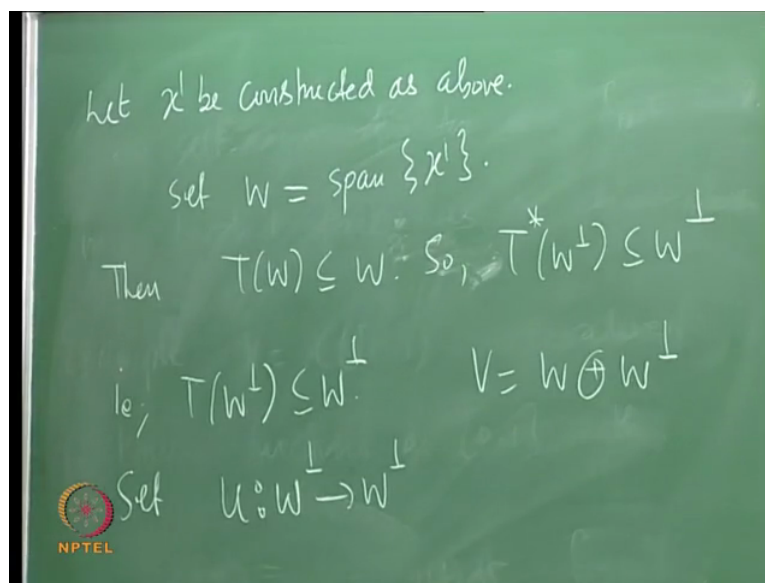 Let x¹ be constructed as above.
Set W = span {x¹}.
Then T(W) ⊆ W. So, T*(W⊥) ⊆ W⊥
ie; T(W⊥) ⊆ W⊥. V = W ⊕ W⊥
Set U : W⊥ → W⊥
NPTEL